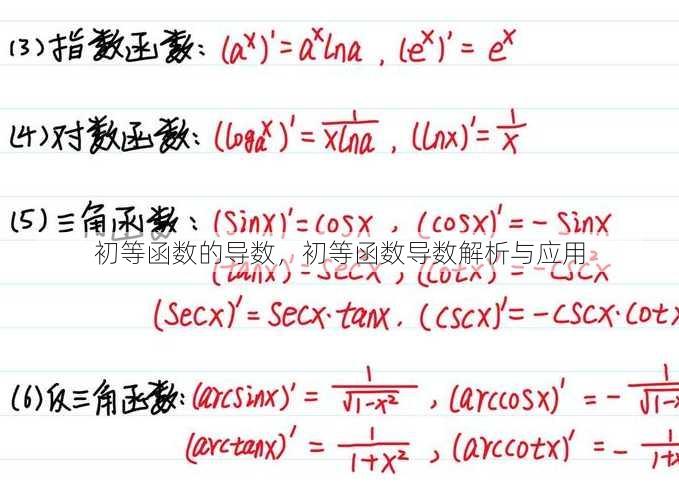 (3)指数函数: (aˣ)'=aˣlna , (eˣ)'= eˣ
(4)对数函数: (logₐˣ)'=1/xlna , (lnx)'=1/x
(5)三角函数: (sinx)'=cosx , (cosx)'=-sinx
初等函数的导数，初等函数导数解析与应用
(tanx)'=sec²x , (cotx)'=-csc²x
(secx)'=secx·tanx. (cscx)'=-cscx·cotx
(6)反三角函数: (arcsinx)'= 1/√1-x² , (arccosx)' = - 1/√1-
(arctanx)' = 1/1+x² , (arccotx)' = - 1/1+